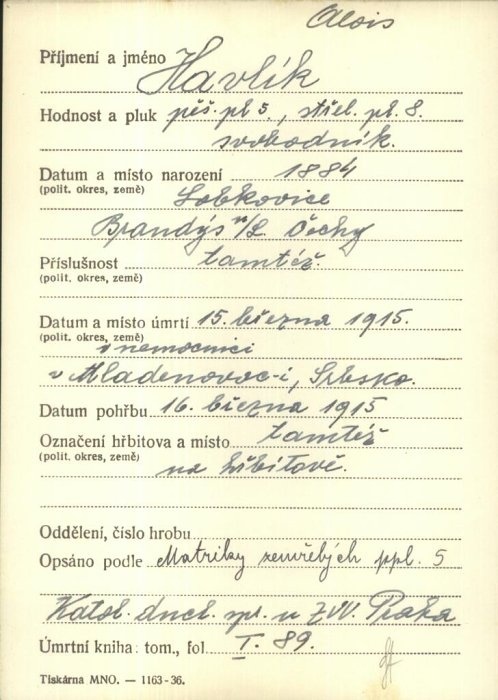 Alois
Příjmení a jméno Havlík
Hodnost a pluk pěš. pl. 5., střel. pl. 8.
svobodník.
Datum a místo narození 1884
(polit. okres, země) Lobkovice
Brandýs n/L. Čechy
Příslušnost tamtéž.
(polit. okres, země)
Datum a místo úmrtí 15. března 1915.
(polit. okres, země) v nemocnici
v Mladenovac-i, Srbsko.
Datum pohřbu 16. března 1915
Označení hřbitova a místo tamtéž
(polit. okres, země) na hřbitově.
Oddělení, číslo hrobu
Opsáno podle Matriky zemřelých ppl. 5
Katol. duch. spr. u ZVV. Praha
Úmrtní kniha: tom., fol. I. 89.
Tiskárna MNO. — 1163-36.